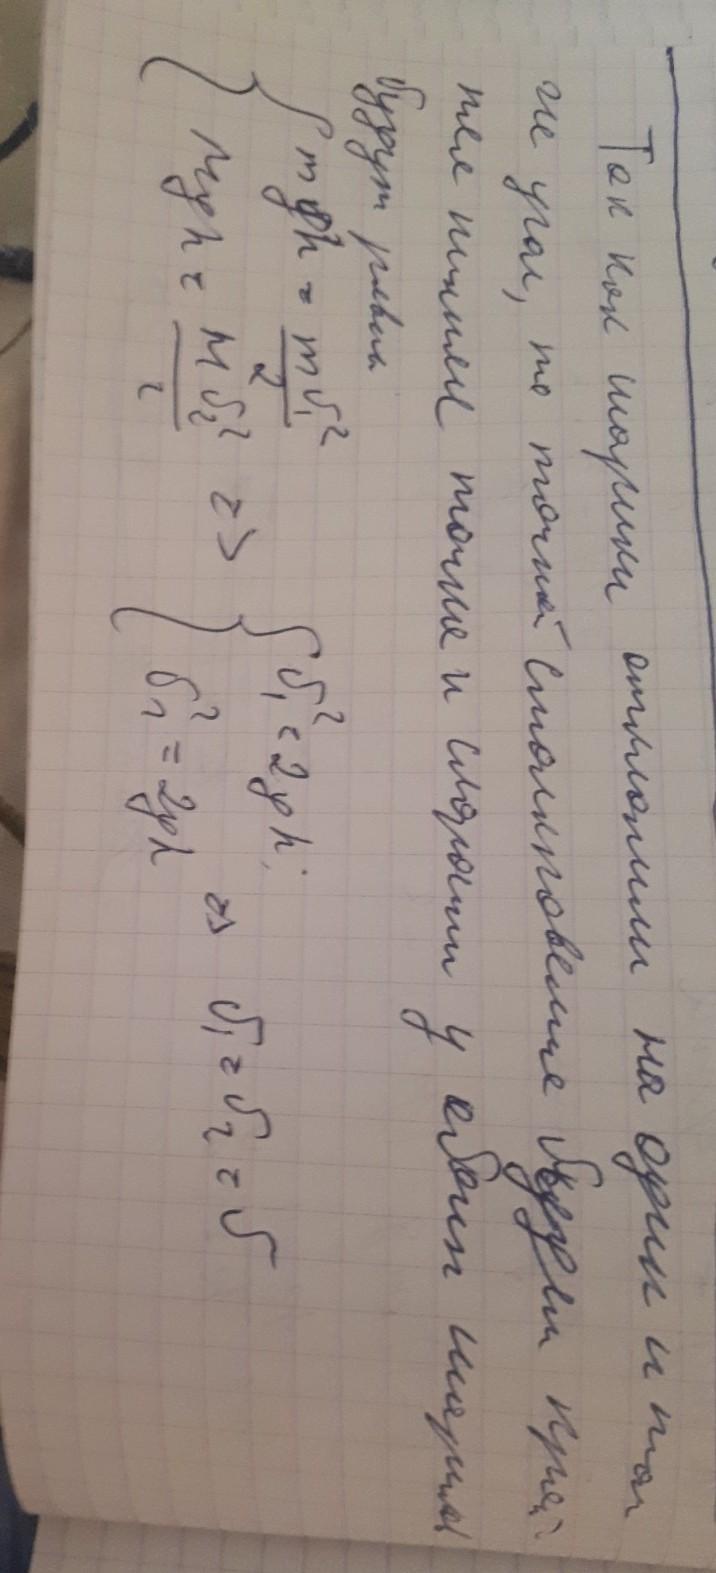 Так как шарики отклонили на один и тот
же угол, то точкой столкновение будет край-
няя нижняя точка и скорости у обоих шариков
будут равны
{ mgh = mv₁²/2
{ Mgh = Mv₂²/2 => { v₁² = 2gh; v₂² = 2gh => v₁ = v₂ = v